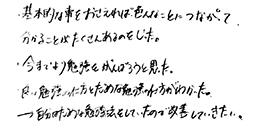 ・基本的な事をおさえれば色んなことにつながって
分かることがたくさんあるのをした。
・今までより勉強をがんばろうと思った。
・良い勉強の仕方とだめな勉強の仕方がわかった。
→自分はだめな勉強法をしていたので改善していきたい。